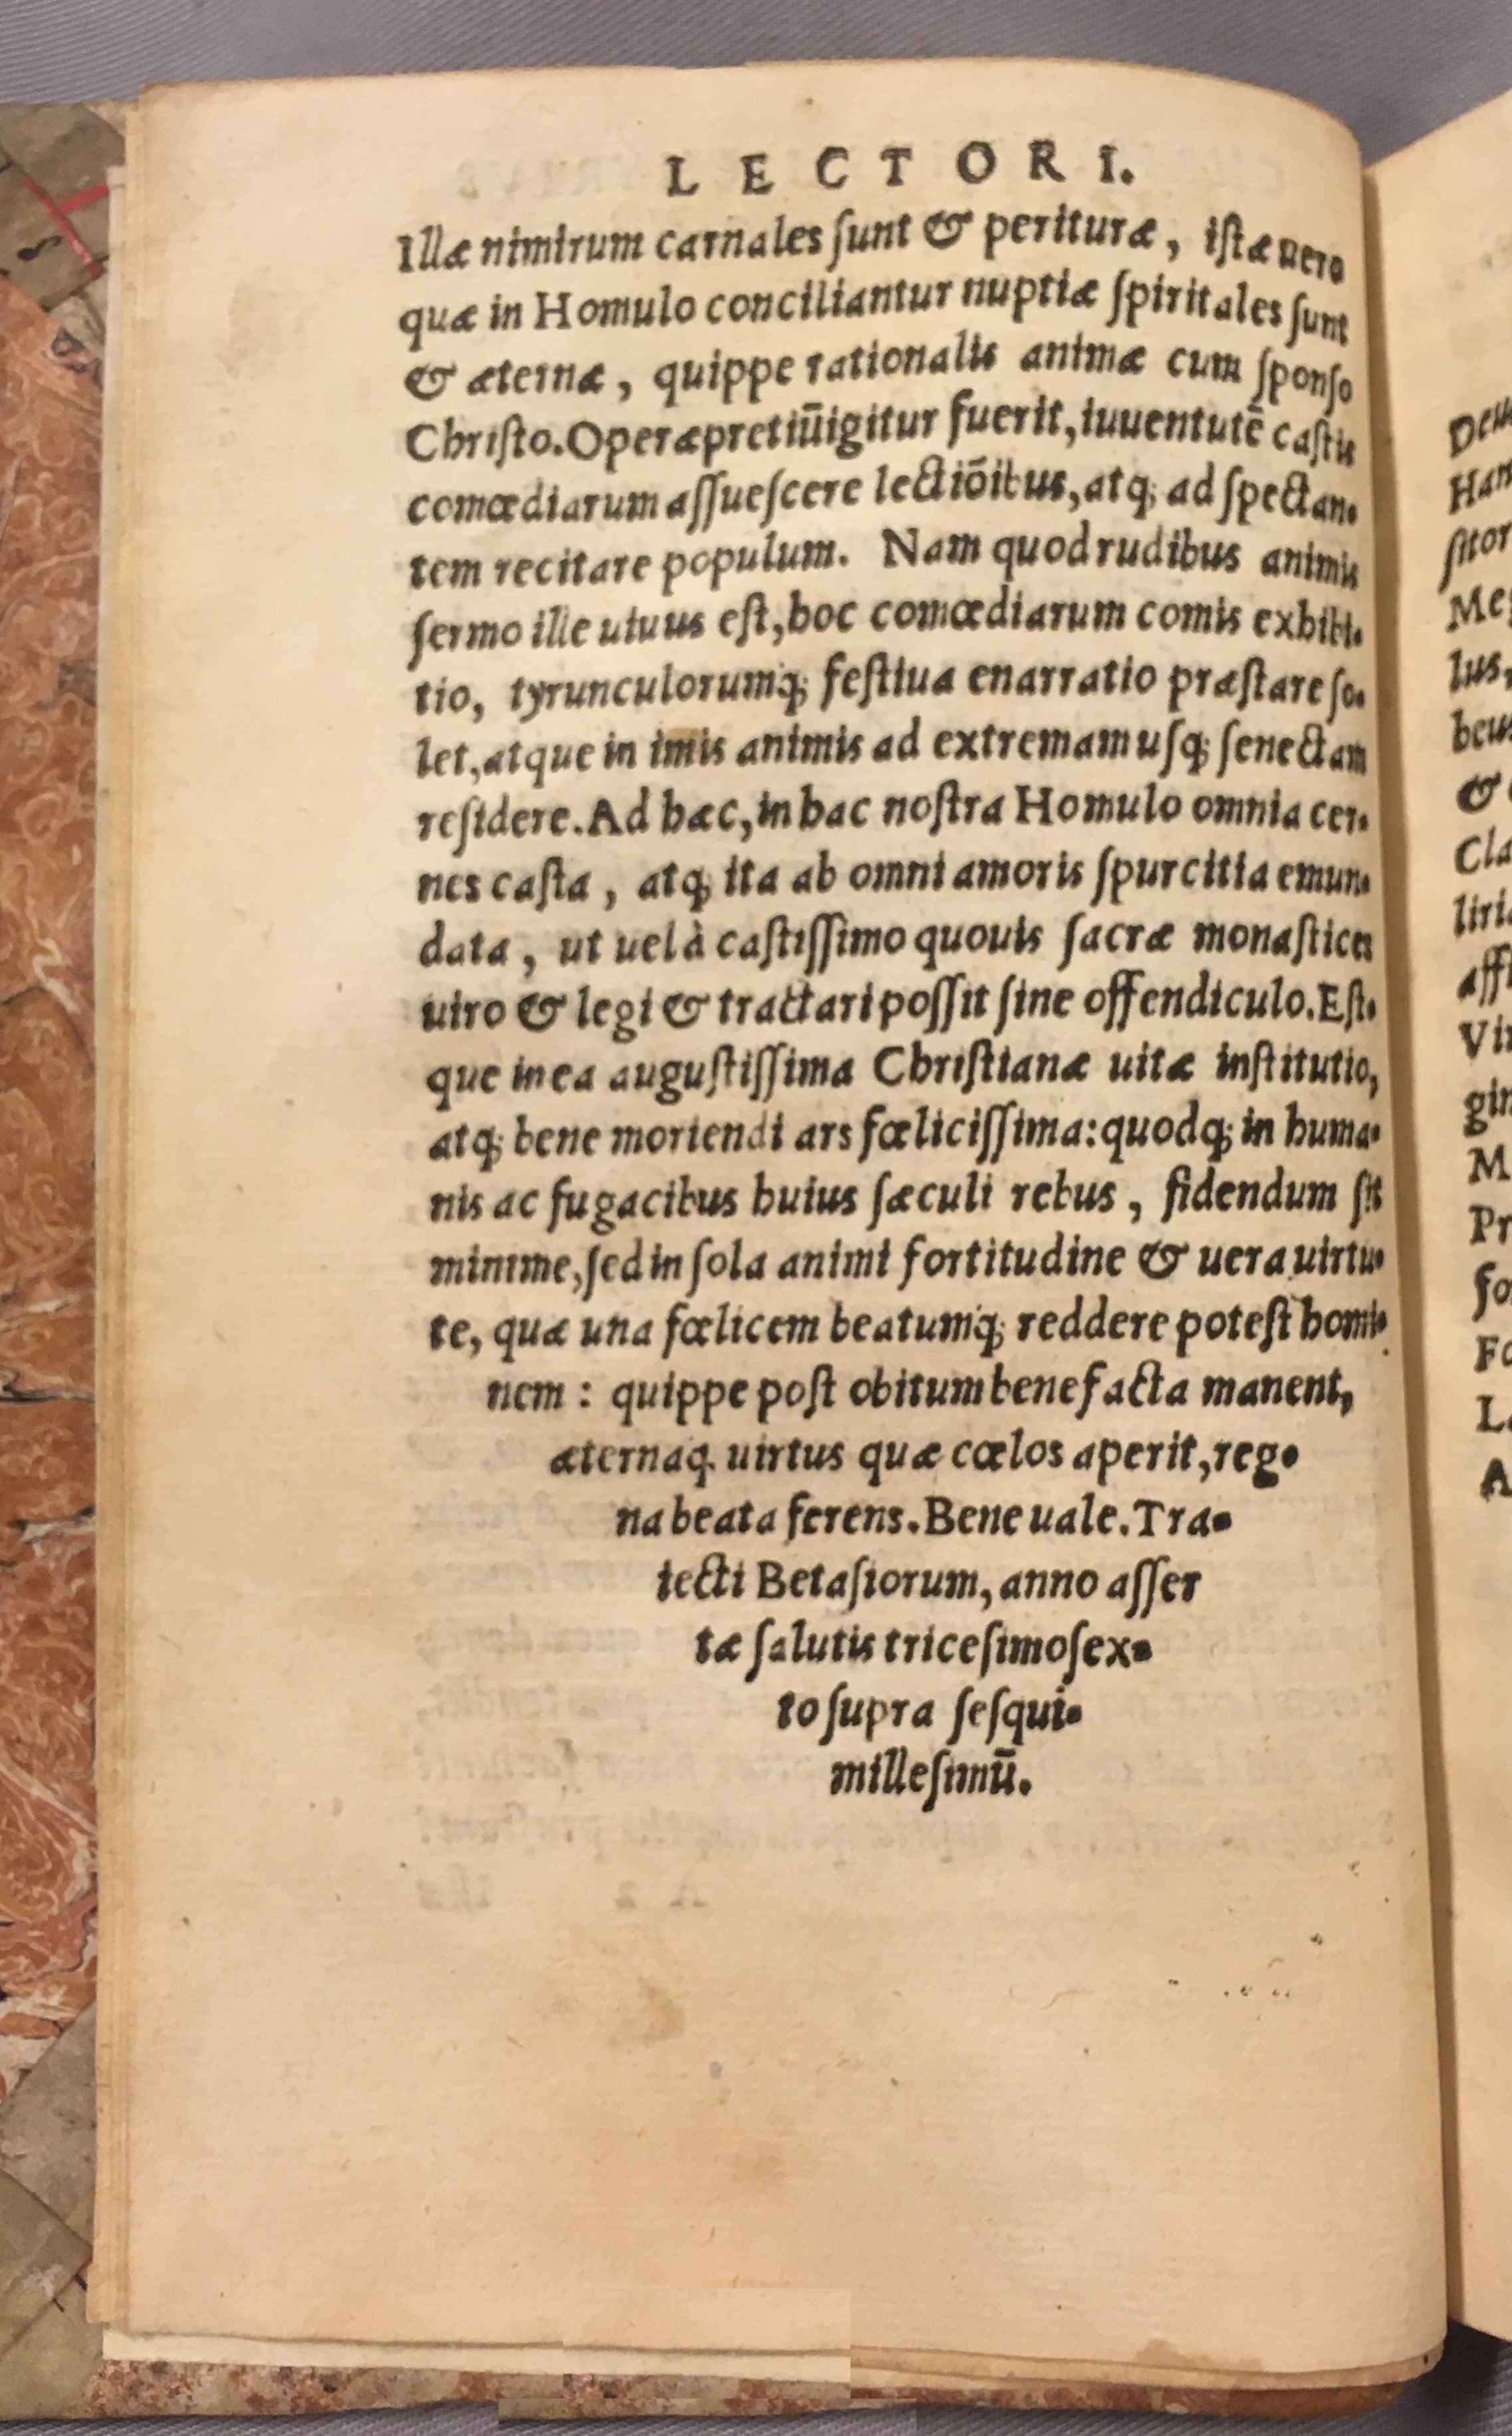 LECTORI.
Illæ nimirum carnales ſunt & perituræ, iſtæ uero
quæ in Homulo conciliantur nuptiæ ſpiritales ſunt
& æternæ, quippe rationalis animæ cum ſponſo
Chriſto. Operæpretiūigitur fuerit, iuuentutē caſtis
comœdiarum aſſueſcere lectiōibus, atq; ad ſpectan-
tem recitare populum. Nam quod rudibus animis
ſermo ille uiuus eſt, hoc comœdiarum comis exhibi-
tio, tyrunculorumq; feſtiua enarratio præſtare ſo-
let, atque in imis animis ad extremam uſq; ſenectam
reſidere. Ad hæc, in hac noſtra Homulo omnia cer-
nes caſta, atq; ita ab omni amoris ſpurcitia emun-
data, ut uel à caſtiſſimo quouis ſacræ monaſtices
uiro & legi & tractari poſſit ſine offendiculo. Eſt-
que in ea auguſtiſſima Chriſtianæ uitæ inſtitutio,
atq; bene moriendi ars fœliciſſima: quodq; in huma-
nis ac fugacibus huius ſæculi rebus, fidendum ſit
minime, ſed in ſola animi fortitudine & uera uirtu-
te, quæ una fœlicem beatumq; reddere poteſt homi-
nem: quippe poſt obitum benefacta manent,
æternaq. uirtus quæ cœlos aperit, reg-
na beata ferens. Bene uale. Tra-
iecti Betaſiorum, anno aſſer
tæ ſalutis triceſimoſex-
to ſupra ſeſqui-
milleſimū.
Deus
Han
ſitor
Meſ
lus,
beus
&
Cla
liri
aſſi
Vir
gin
M
Pr
fo
Fo
La
A